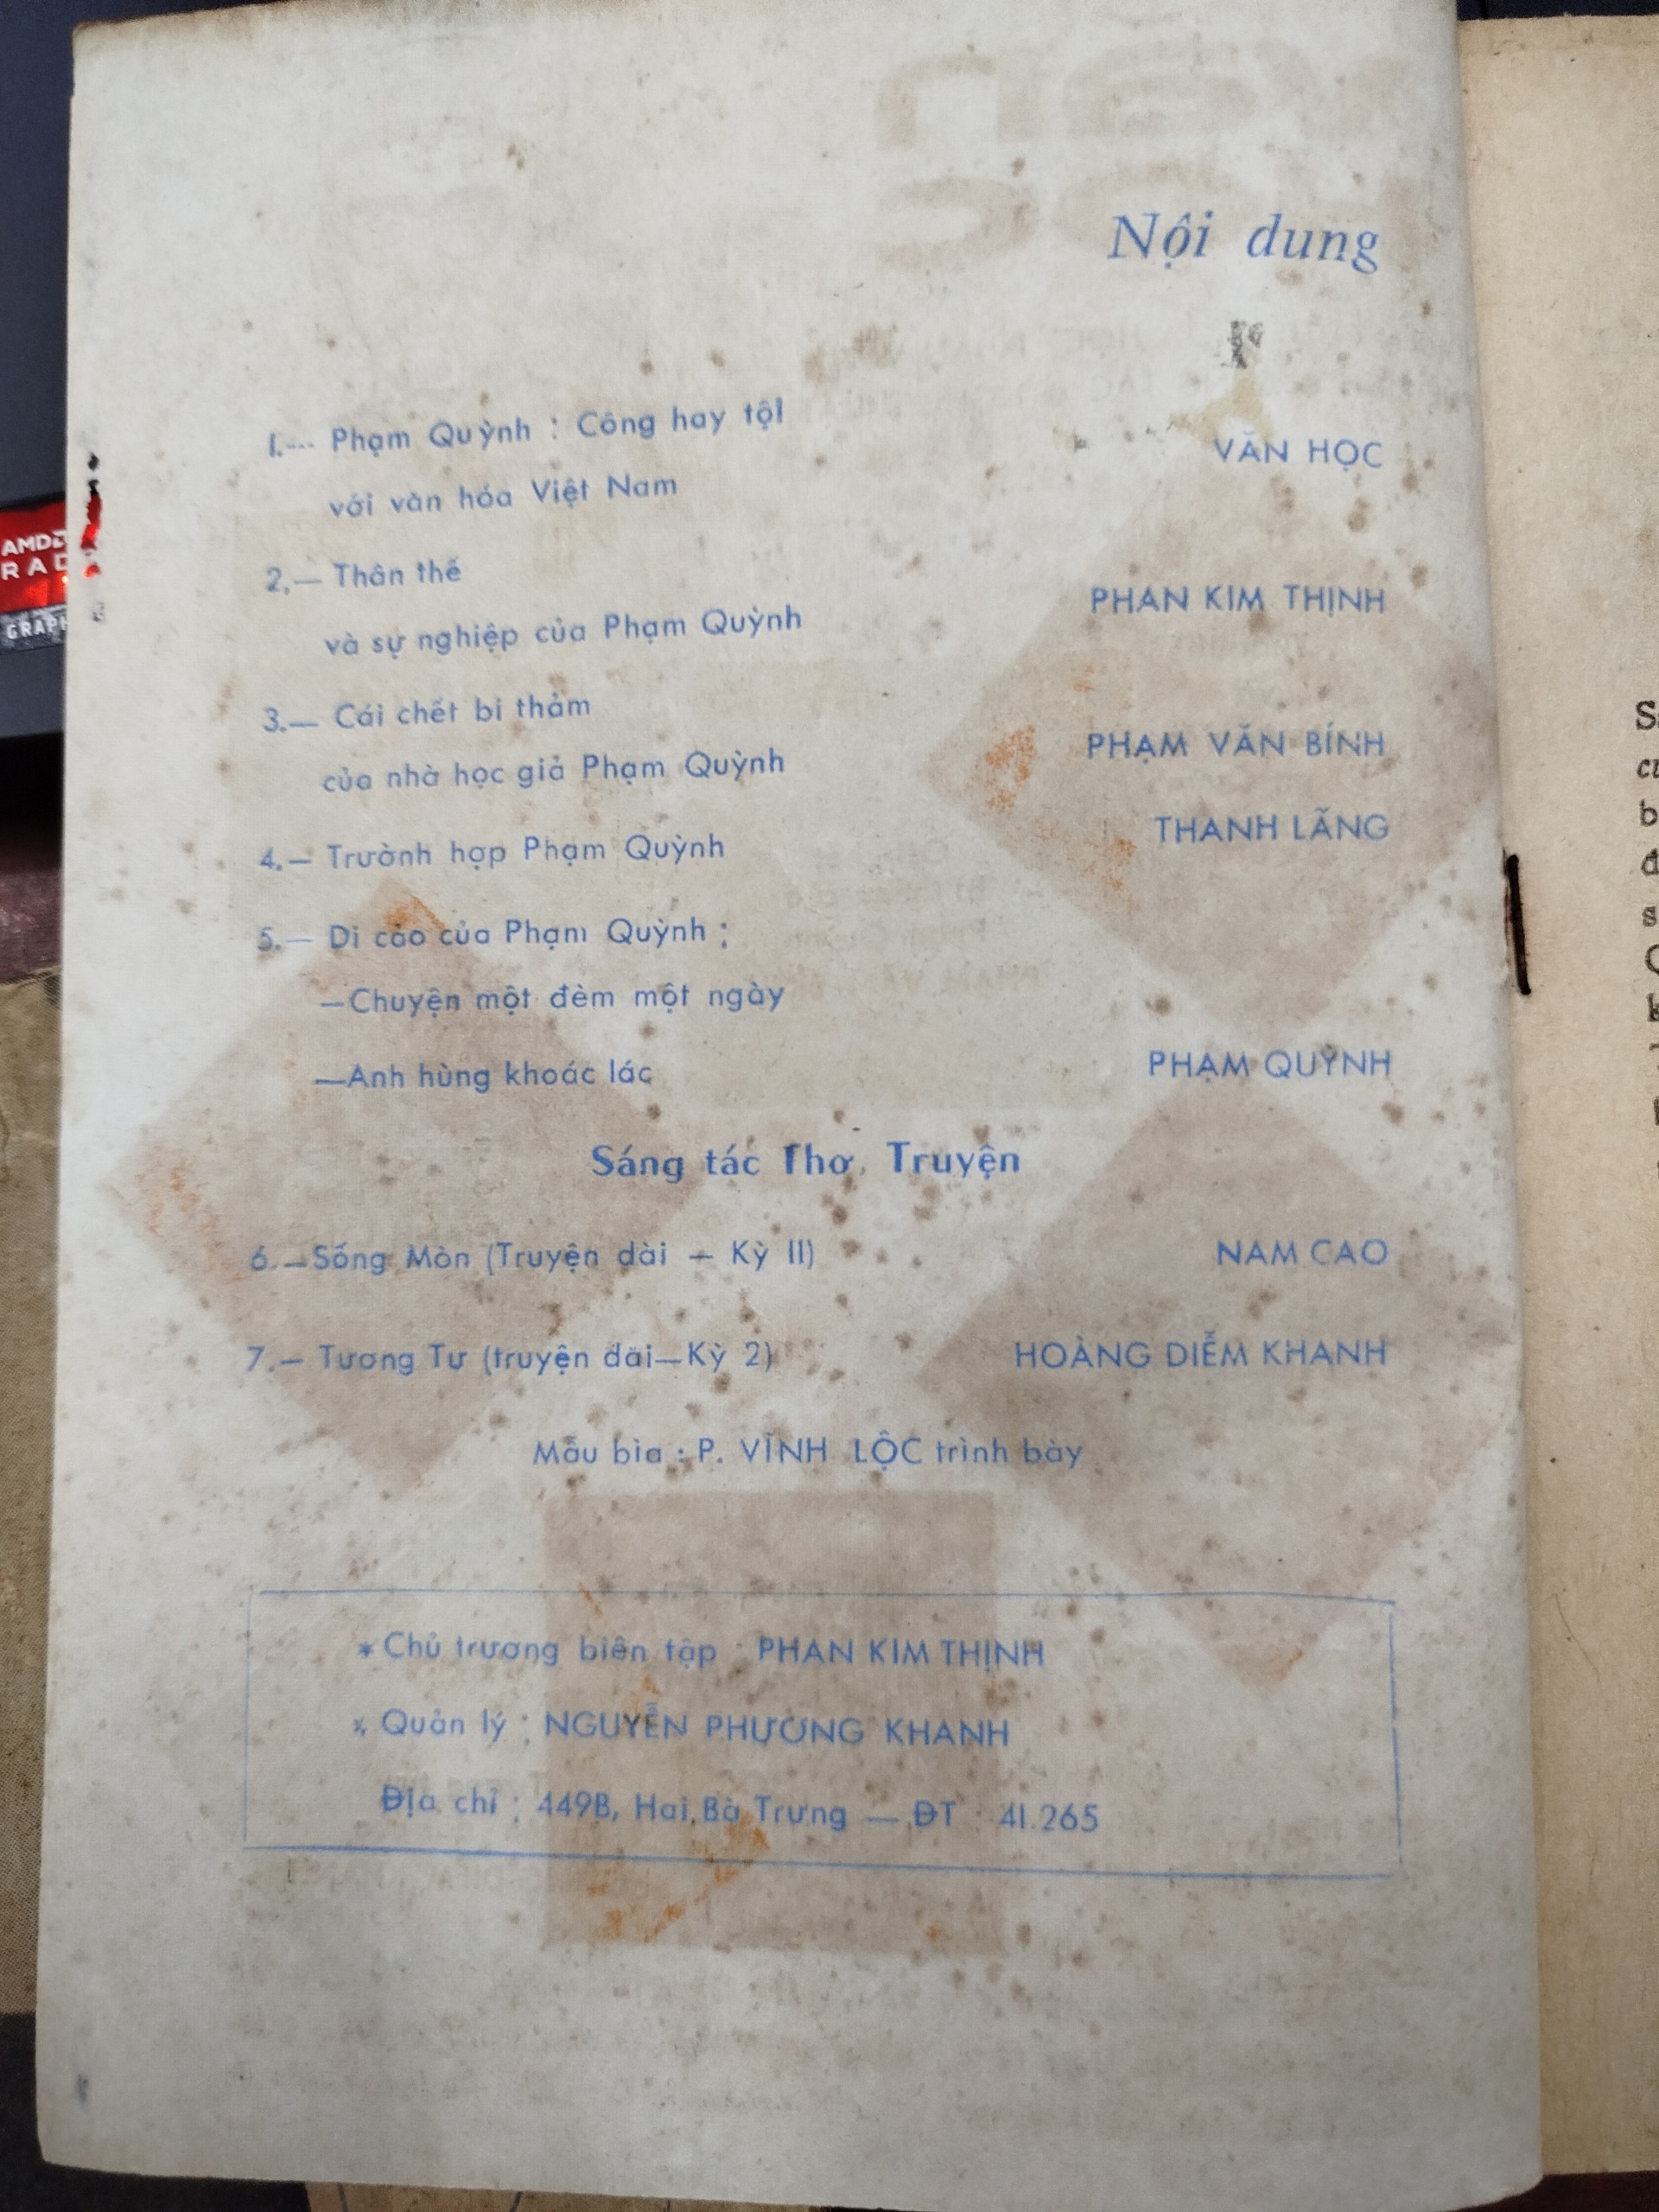 Nội dung
1.— Phạm Quỳnh : Công hay tội
với văn hóa Việt Nam
VĂN HỌC
2.— Thân thế
và sự nghiệp của Phạm Quỳnh
PHAN KIM THỊNH
3.— Cái chết bi thảm
của nhà học giả Phạm Quỳnh
PHẠM VĂN BÍNH
4.— Trường hợp Phạm Quỳnh
THANH LÃNG
5.— Di cảo của Phạm Quỳnh :
—Chuyện một đêm một ngày
—Anh hùng khoác lác
PHẠM QUỲNH
Sáng tác Thơ, Truyện
6.—Sống Mòn (Truyện dài — Kỳ II)
NAM CAO
7.— Tương Tư (truyện dài—Kỳ 2)
HOÀNG DIỄM KHANH
Mẫu bìa : P. VĨNH LỘC trình bày
* Chủ trương biên tập : PHAN KIM THỊNH
* Quản lý : NGUYỄN PHƯƠNG KHANH
Địa chỉ : 449B, Hai Bà Trưng — ĐT : 41.265
AMD
RAD
GRAPH